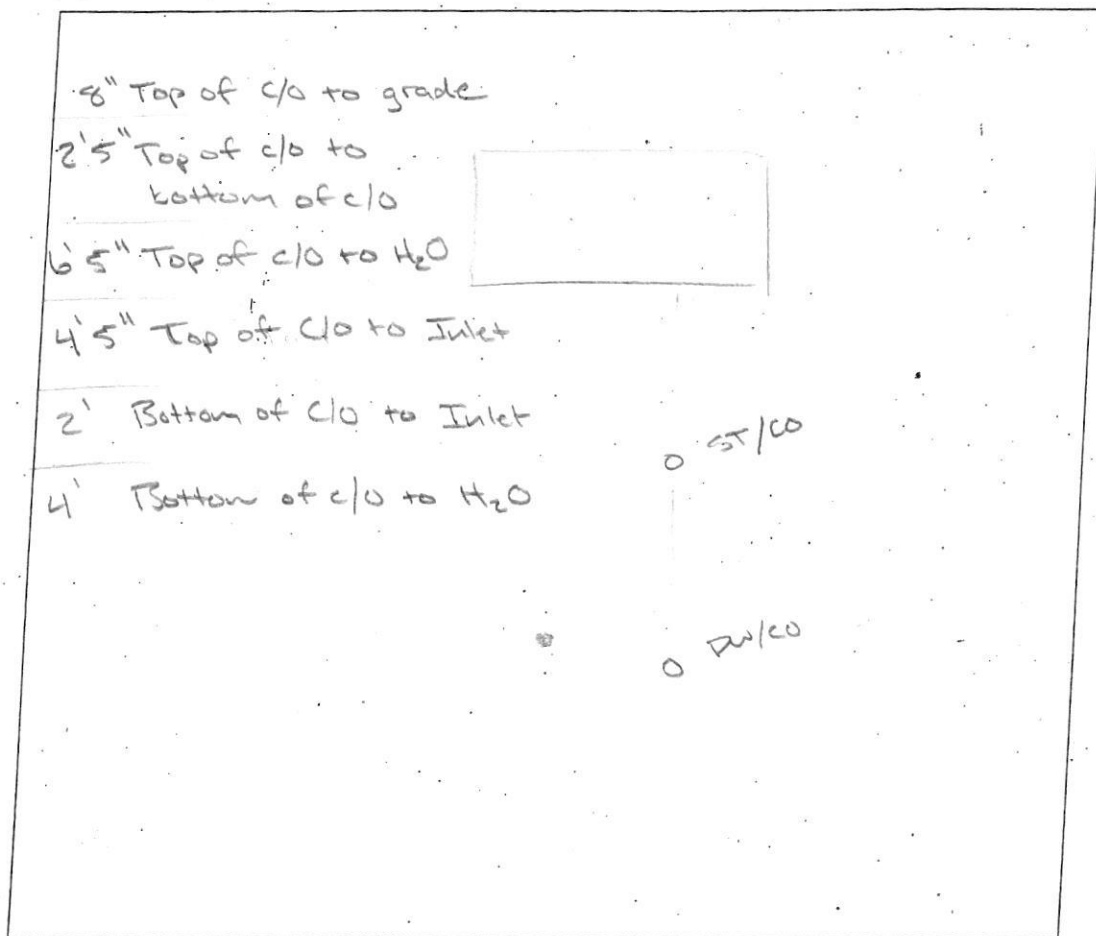 8" Top of c/o to grade
2'5" Top of c/o to
bottom of c/o
6'5" Top of c/o to H₂O
4'5" Top of C/o to Inlet
2' Bottom of C/o to Inlet
4' Bottom of c/o to H₂O
ST/CO
DW/CO